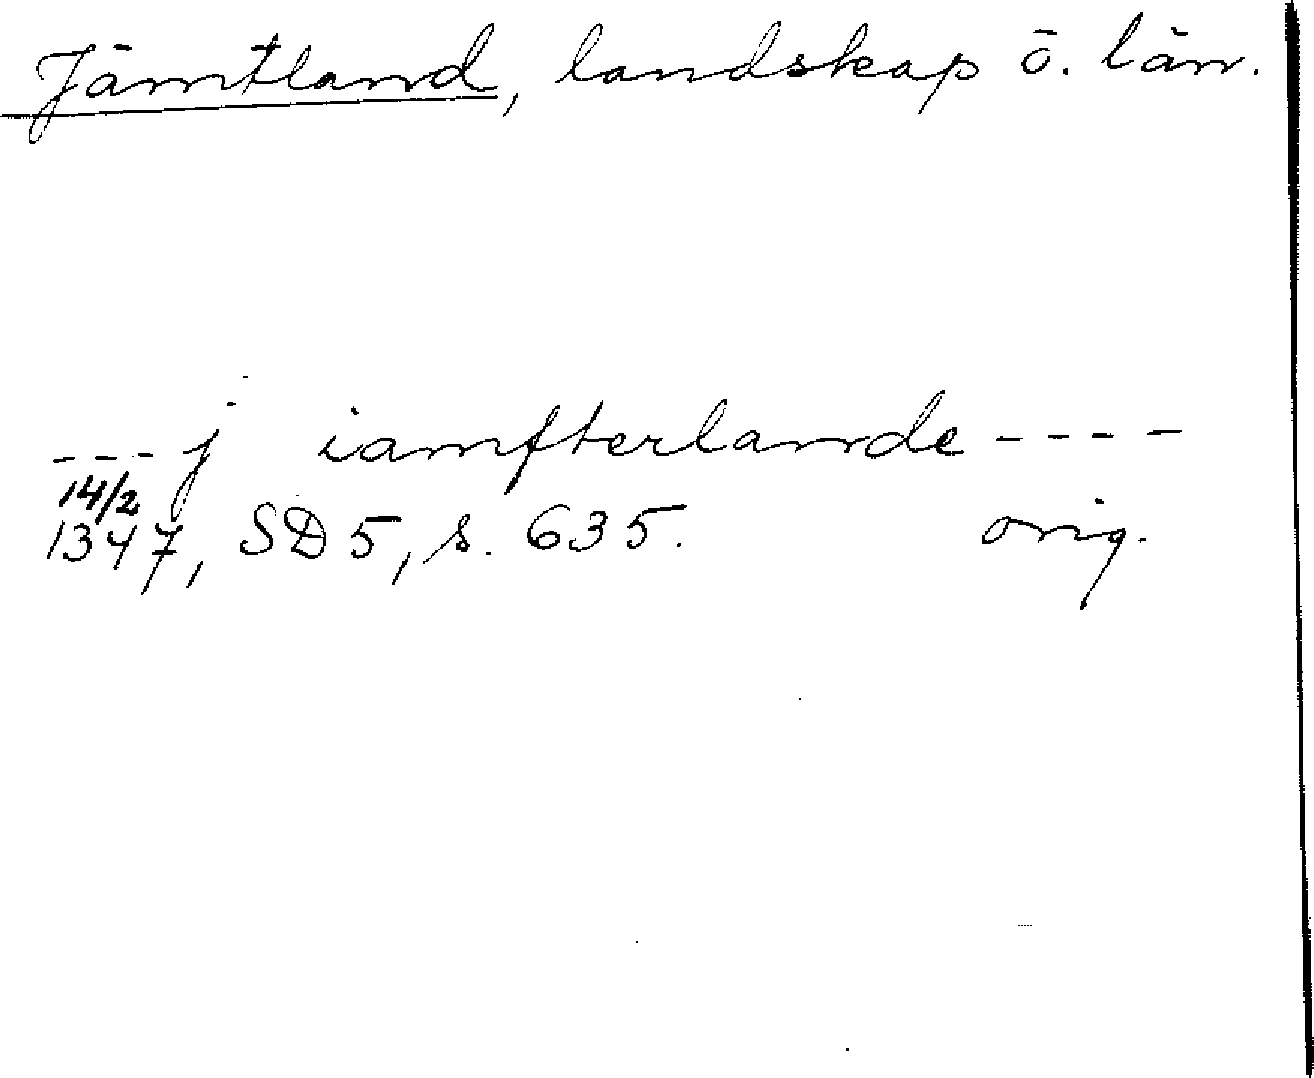 Jämtland, landskap o. län.
--- j iamfterlande ----
14/2
1347, SD 5, s. 635. orig.